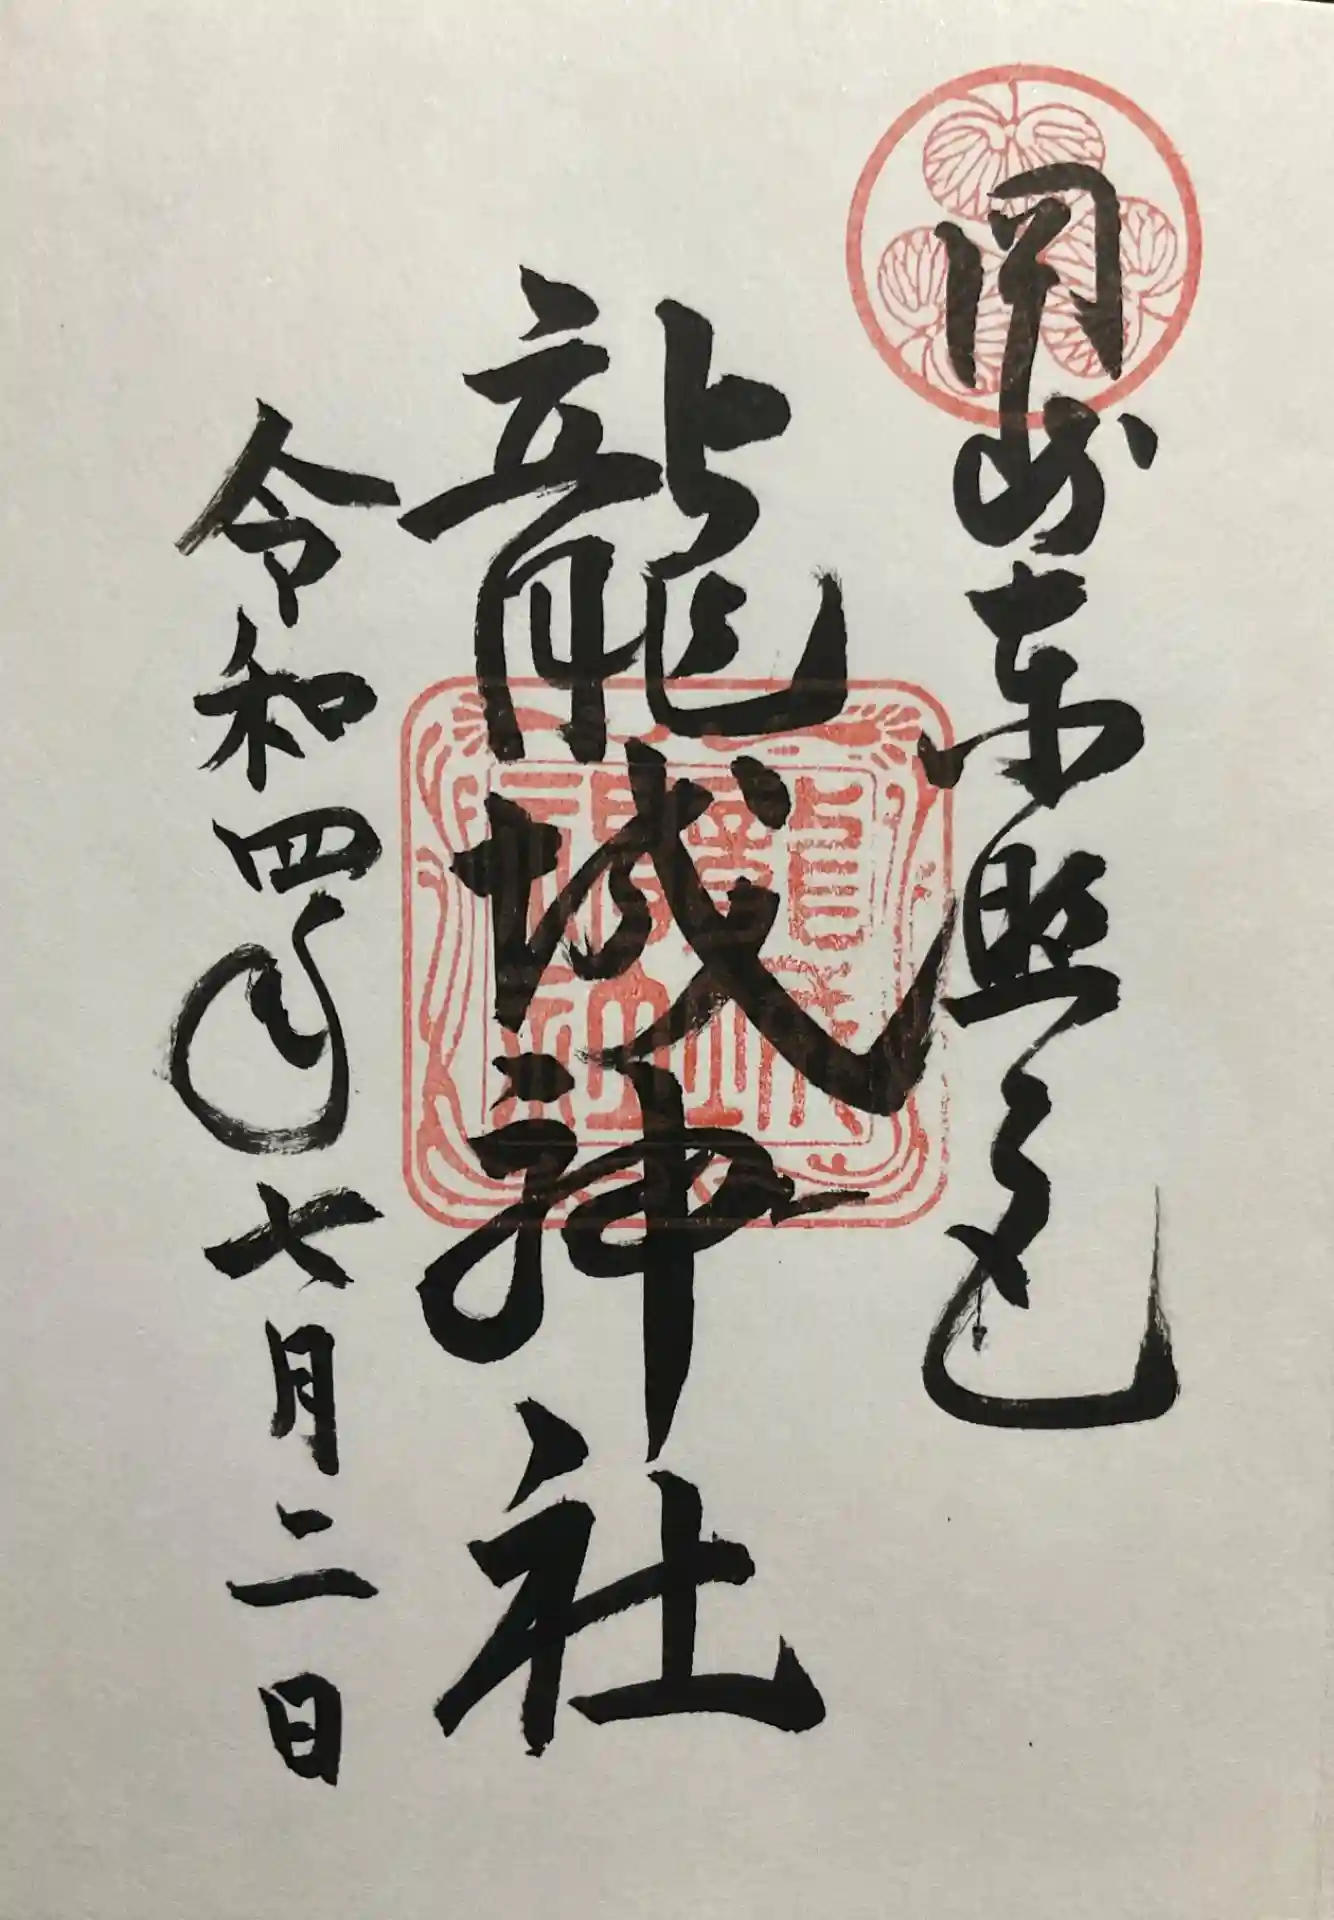 岡崎東照宮
龍城神社
令和四年七月二日
龍城神社